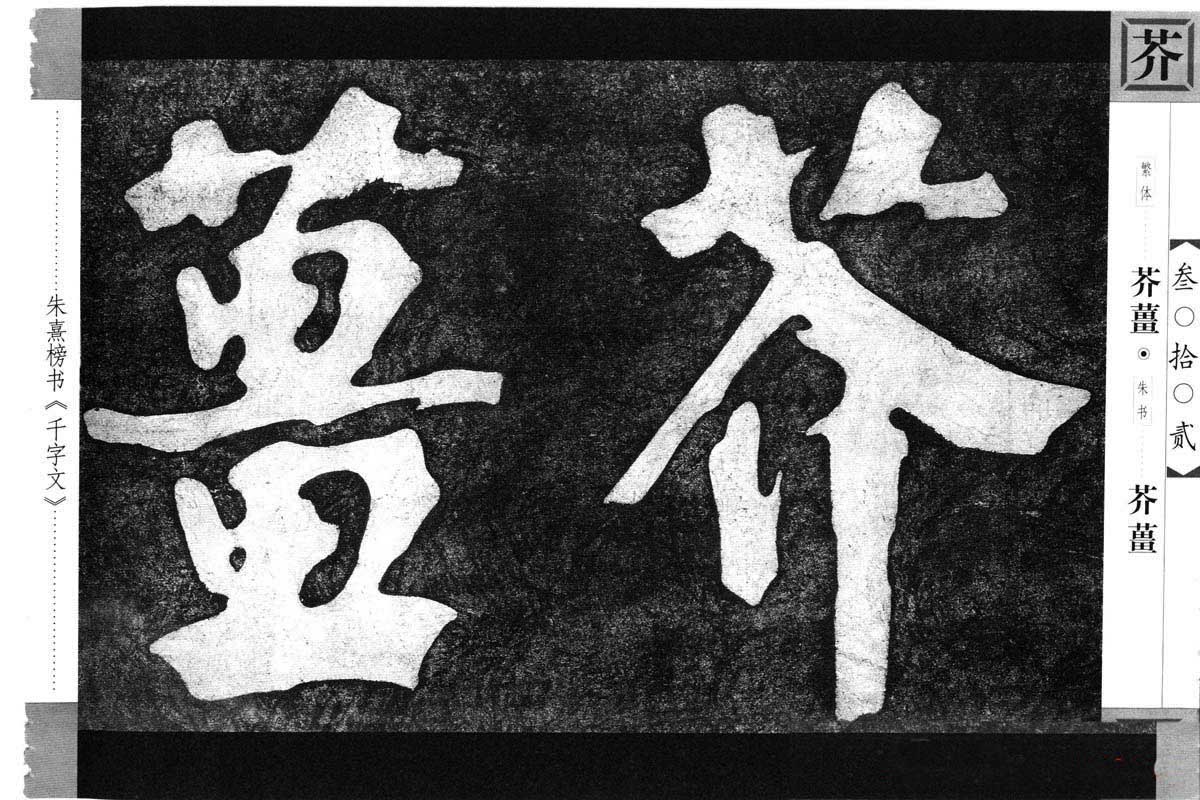 芥
叁〇拾〇贰
繁体 芥薑 • 朱书 芥薑
芥薑
朱熹榜书《千字文》